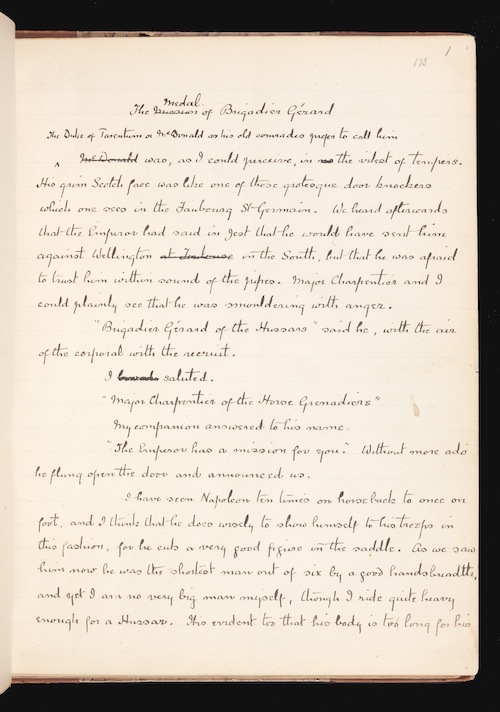 1
173
Medal
The Mission of Brigadier Gérard
The Duke of Tarentum or McDonald as his old comrades prefer to call him
McDonald was, as I could perceive, in the vilest of tempers.
His grim Scotch face was like one of those grotesque door knockers
which one sees in the Faubourg St Germain. We heard afterwards
that the Emperor had said in jest that he would have sent him
against Wellington at Toulouse in the South, but that he was afraid
to trust him within sound of the pipes. Major Charpentier and I
could plainly see that he was smouldering with anger.
"Brigadier Gérard of the Hussars" said he, with the air
of the corporal with the recruit.
I saluted.
"Major Charpentier of the Horse Grenadiers"
My companion answered to his name.
"The Emperor has a mission for you." Without more ado
he flung open the door and announced us.
I have seen Napoleon ten times on horseback to once on
foot, and I think that he does wisely to show himself to his troops in
this fashion, for he cuts a very good figure in the saddle. As we saw
him now he was the shortest man out of six by a good handsbreadth,
and yet I am no very big man myself, though I ride quite heavy
enough for a Hussar. It is evident too that his body is too long for his